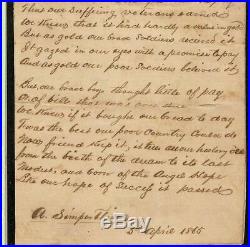 Thus our suffering veterans earned
We knew that it had hardly a value in gold
But as gold our brave Soldiers received it
It gazed in our eyes with a promise to pay
And as gold our poor Soldiers believed it
But our brave boys thought little of pay
Or of bills that was over due
We knew if it bought our bread to day
Twas the best our poor Country could do
Now friend Keep it, it tells our history
From the birth of the dream to its last
Modest, and born of the Angel Hope
Like our hope of Success it passed
A. Simpe
3rd April 1865